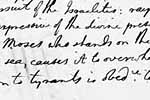 suit of the Israelites: ray
expressive of the divine pres
Moses who stands on the
sea, causes it to overwhe
n to tyrants is obed.ce to